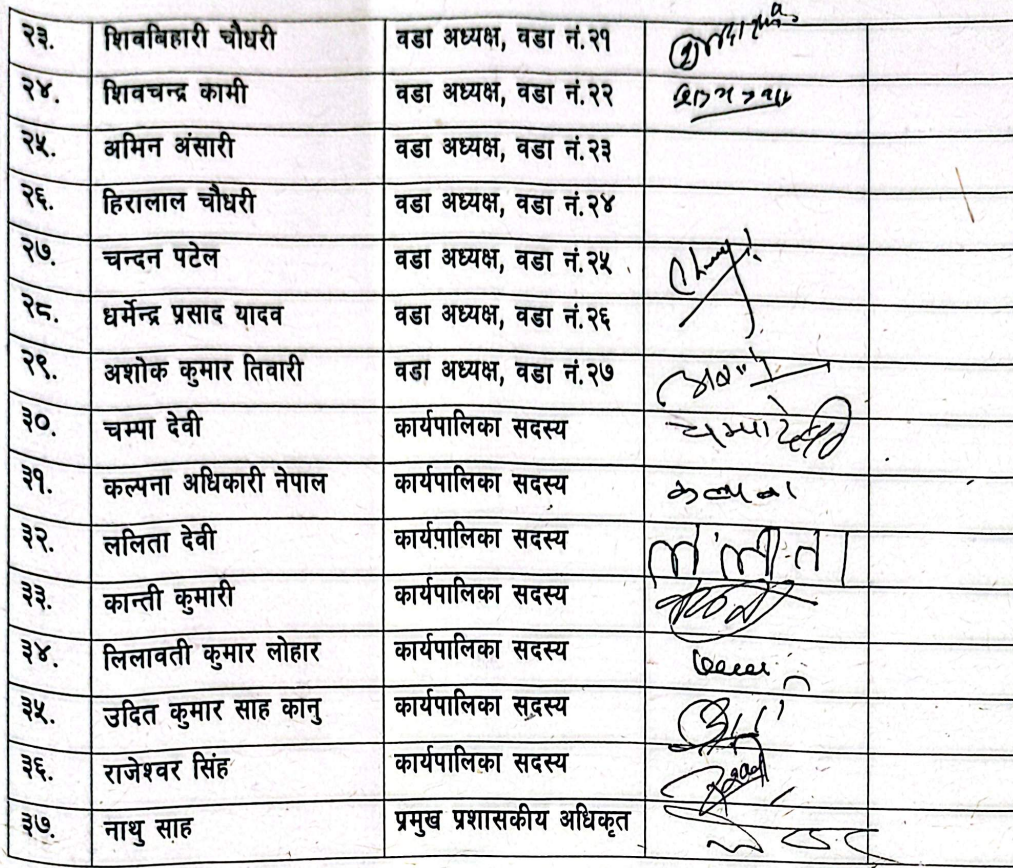 २३. शिवबिहारी चौधरी वडा अध्यक्ष, वडा नं.२१
२४. शिवचन्द्र कामी वडा अध्यक्ष, वडा नं.२२
२५. अमिन अंसारी वडा अध्यक्ष, वडा नं.२३
२६. हिरालाल चौधरी वडा अध्यक्ष, वडा नं.२४
२७. चन्दन पटेल वडा अध्यक्ष, वडा नं.२५
२८. धर्मेन्द्र प्रसाद यादव वडा अध्यक्ष, वडा नं.२६
२९. अशोक कुमार तिवारी वडा अध्यक्ष, वडा नं.२७
३०. चम्पा देवी कार्यपालिका सदस्य चम्पा देवी
३१. कल्पना अधिकारी नेपाल कार्यपालिका सदस्य कल्पना
३२. ललिता देवी कार्यपालिका सदस्य
३३. कान्ती कुमारी कार्यपालिका सदस्य
३४. लिलावती कुमार लोहार कार्यपालिका सदस्य
३५. उदित कुमार साह कानु कार्यपालिका सदस्य
३६. राजेश्वर सिंह कार्यपालिका सदस्य
३७. नाथु साह प्रमुख प्रशासकीय अधिकृत